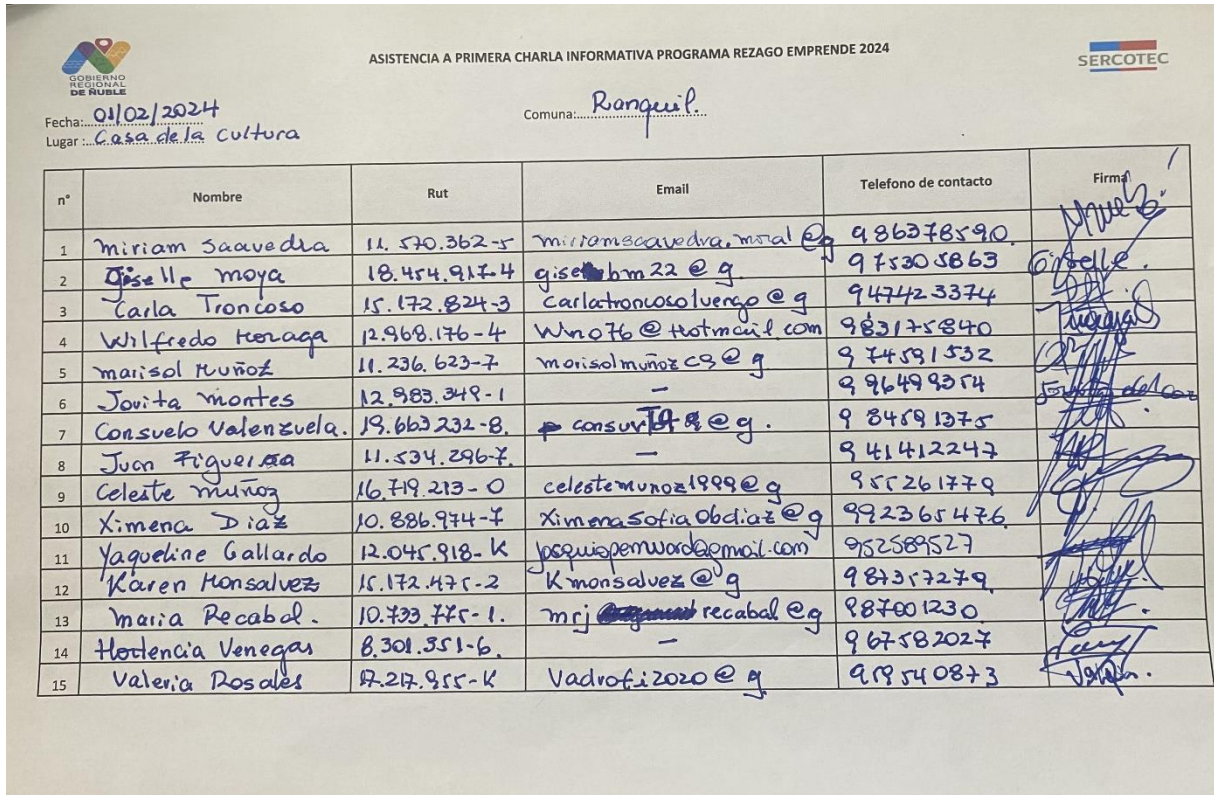 GOBIERNO
REGIONAL
DE ÑUBLE
ASISTENCIA A PRIMERA CHARLA INFORMATIVA PROGRAMA REZAGO EMPRENDE 2024
SERCOTEC
Fecha: 01/02/2024
Comuna: Ranquil.
Lugar: Casa de la Cultura
n° Nombre Rut Email Telefono de contacto Firma
1 Miriam Saavedra 11.570.362-5 @g 986378590
2 Giselle Moya 18.454.917-4 @g. 975305863 Giselle.
3 Carla Troncoso 15.172.824-3 carlatroncosoluengo@g 947423374
4 Wilfredo 12.968.176-4 Wno76@Hotmail.com 983175840
5 Marisol Muñoz 11.236.623-7 marisolmuñozc9@g 974591532
6 Jovita Montes 12.983.349-1 — 996499354
7 Consuelo Valenzuela. 19.663232-8. @g. 984591375
8 Juan Figueroa 11.534.296-7. — 941412247
9 Celeste Muñoz 16.719.213-0 celestemunoz1999@g 955261779
10 Ximena Diaz 10.886.974-7 Ximenasofia06diaz@g 992365476
11 Yaqueline Gallardo 12.045.918-K 952589527
12 Karen Monsalvez 15.172.475-2 Kmonsalvez@g 987357279
13 Maria Recabal. 10.733.775-1. mrj recabal@g 987001230
14 Hortencia Venegas 8.301.351-6. — 967582027
15 Valeria Rosales 17.217.955-K Vadrofi2020@g 959540873